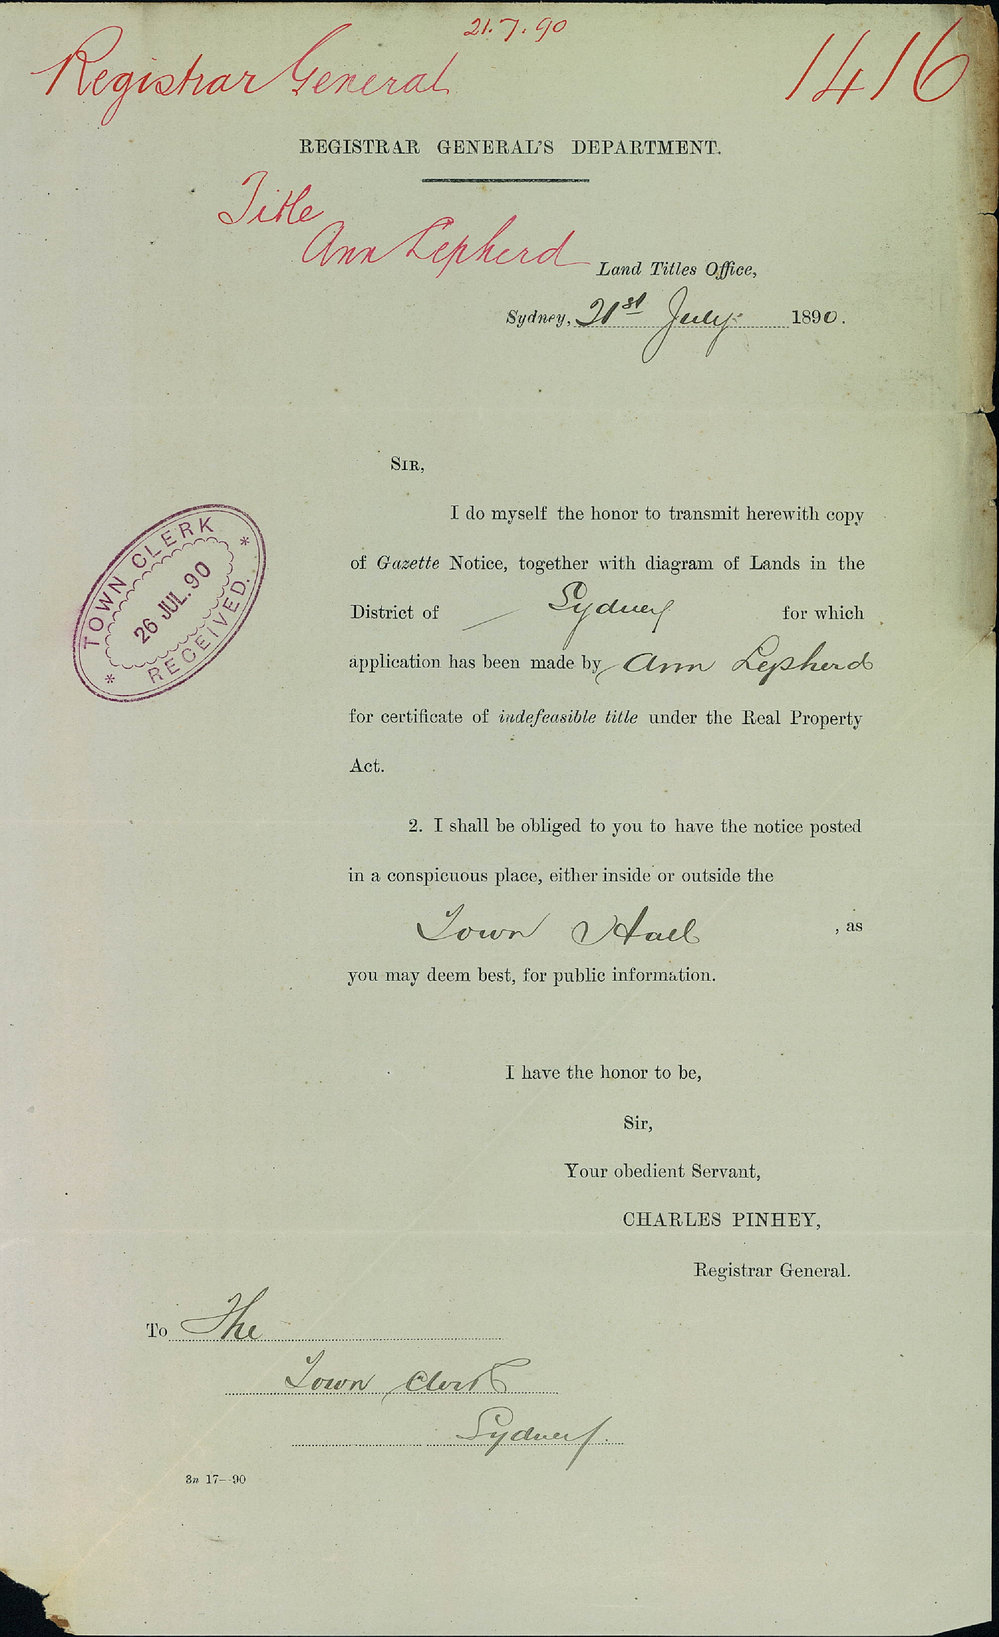 21.7.90
Registrar General
1416
REGISTRAR GENERAL'S DEPARTMENT.
Title
Ann Lepherd
Land Titles Office,
Sydney, 21st July 1890.
SIR,
I do myself the honor to transmit herewith copy
of Gazette Notice, together with diagram of Lands in the
District of Sydney for which
application has been made by Ann Lepherd
for certificate of indefeasible title under the Real Property
Act.
TOWN CLERK
26 JUL. 90
* RECEIVED. *
2. I shall be obliged to you to have the notice posted
in a conspicuous place, either inside or outside the
Town Hall , as
you may deem best, for public information.
I have the honor to be,
Sir,
Your obedient Servant,
CHARLES PINHEY,
Registrar General.
To The
Town Clerk
Sydney.
3n 17—90